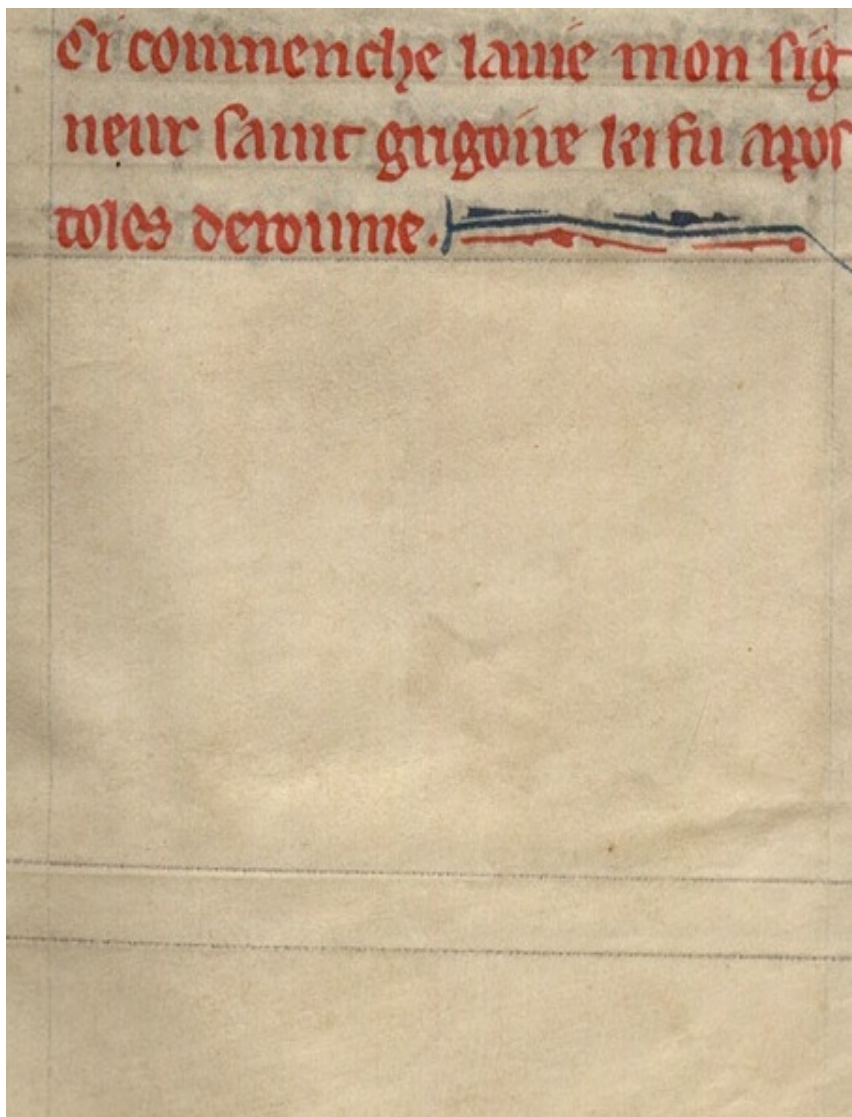 Ci coumenche lauie mon sig
neur saint grigoire ki fu apos
toles deroume.